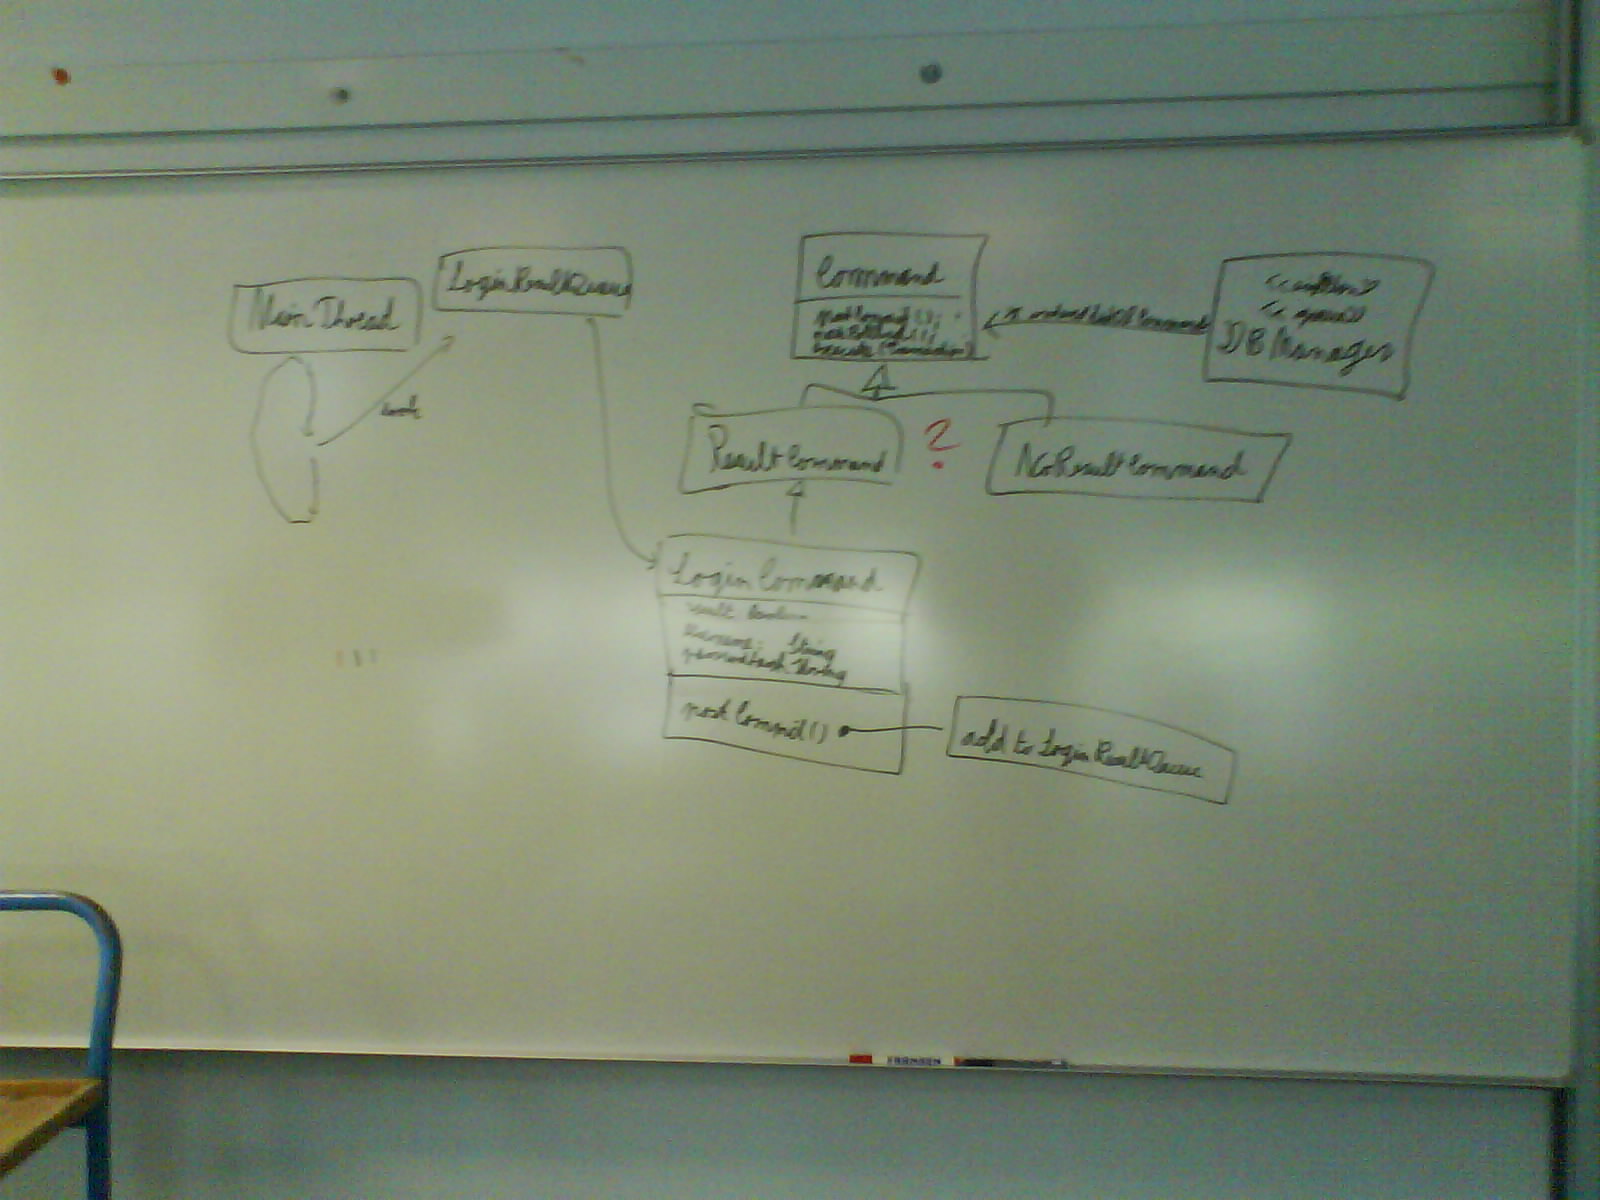 Main Thread
LoginResultQueue
Command
postCommit();
execute(Connection)
DB Manager
ResultCommand
?
NoResultCommand
LoginCommand
result: boolean
username: String
String
postCommit()
add to LoginResultQueue